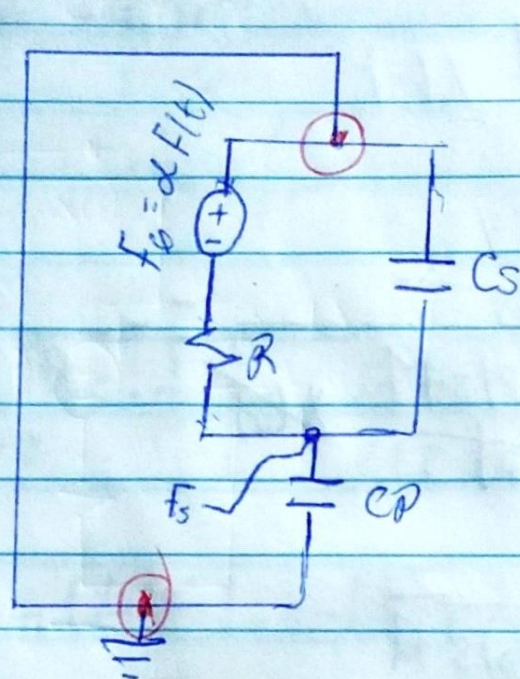 F₀ = αF(t)
+
-
Cs
R
Fs
CP